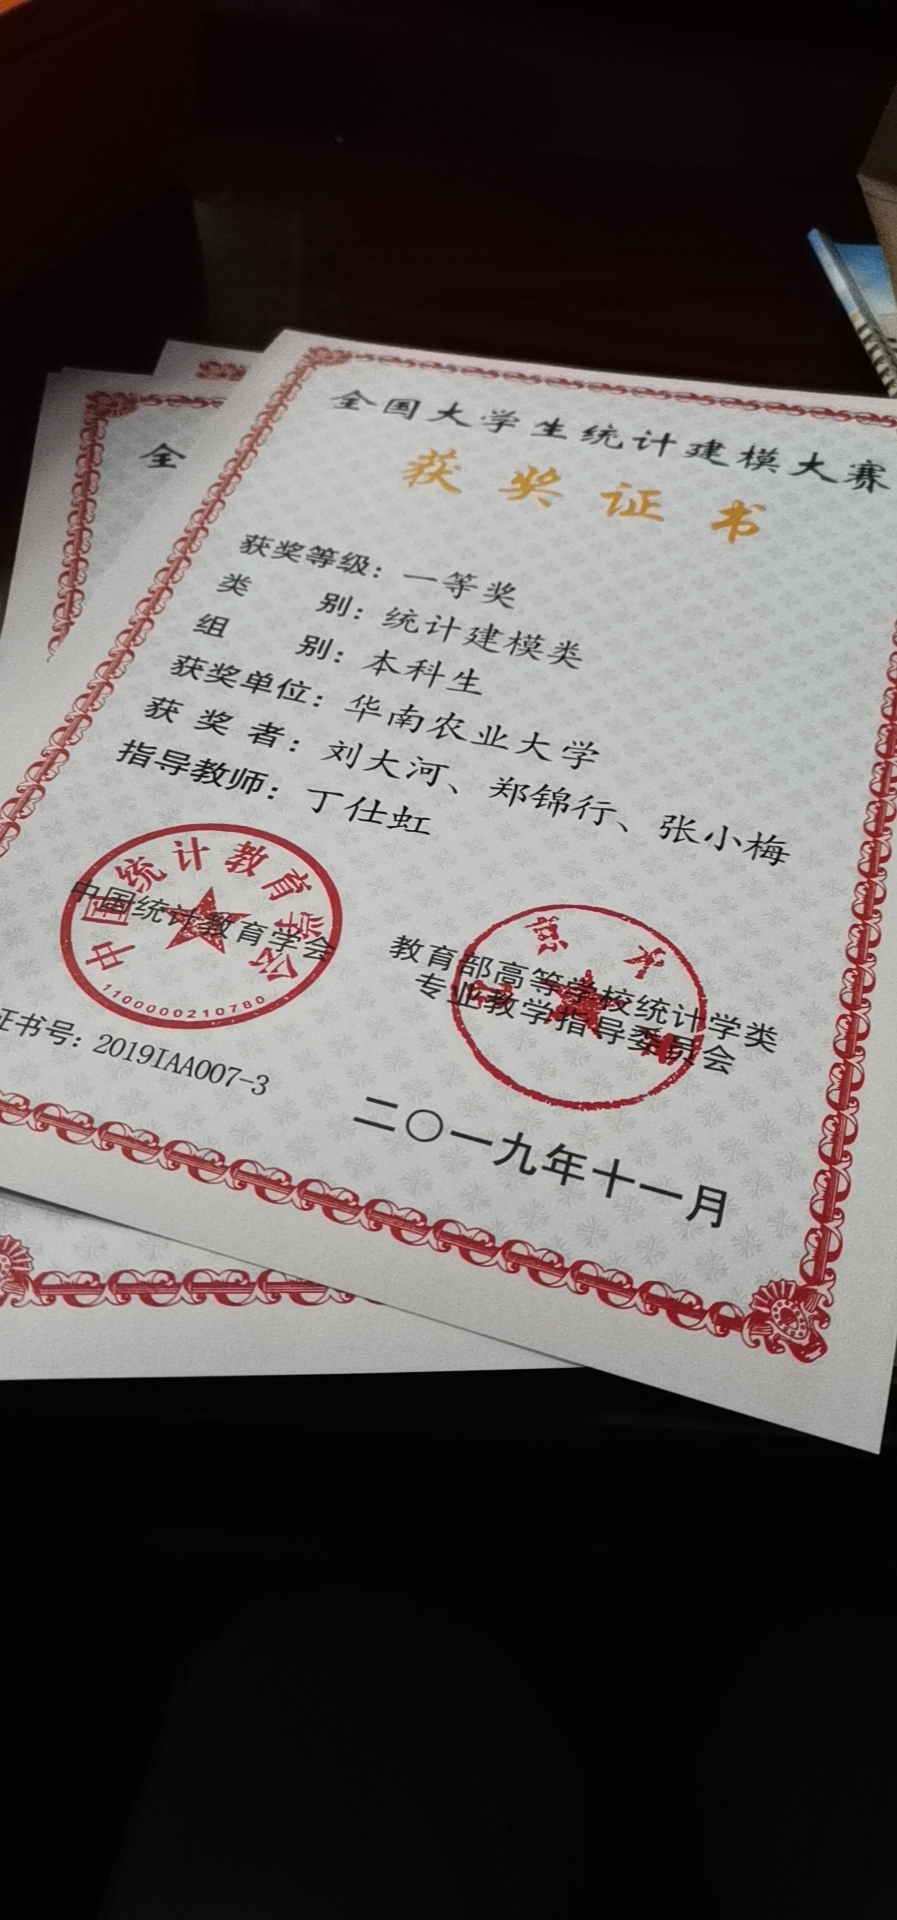 全国大学生统计建模大赛
获奖证书
获奖等级：一等奖
类别：统计建模类
组别：本科生
获奖单位：华南农业大学
获奖者：刘大河、郑锦行、张小梅
指导教师：丁仕虹
中国统计教育学会
中国统计教育学会
1100000210780
教育部高等学校统计学类
专业教学指导委员会
证书号：2019IAA007-3
二〇一九年十一月
全